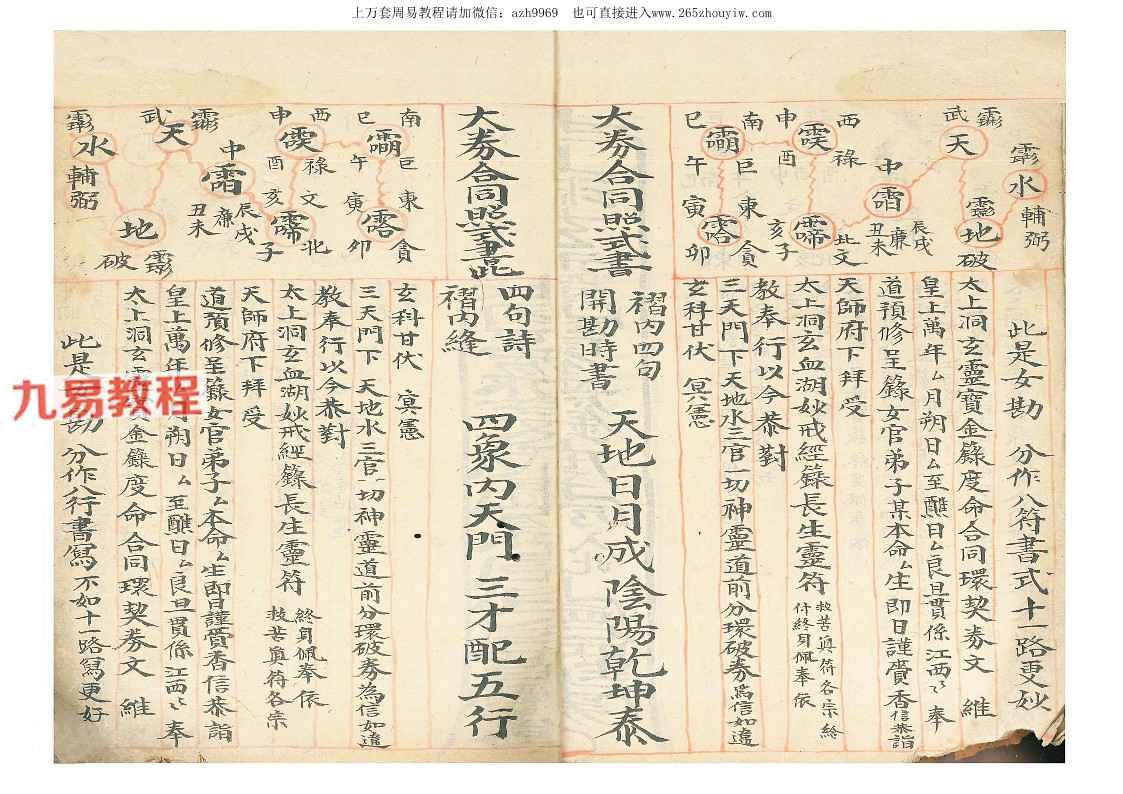 上万套周易教程请加微信：azh9969　也可直接进入www.265zhouyiw.com
此是女勘　分作八符書式十一路更妙
水　輔弼
武　天　地　破
中　廉　丑未　辰戌
西　申　禄　酉　亥子　北文
南　巳　巨　午　東　寅　貪　卯
太上洞玄靈寶金籙度命合同環契券文　維
皇上萬年ム月朔日ム至醮日ム良旦貫係江西〻奉
道預修呈籙女官弟子某本命ム生即日謹賫香信恭詣
天師府下拜受
太上洞玄血湖妙戒經籙長生靈符　救苦真符各宗給仟終身佩奉依
教奉行以今恭對
三天門下天地水三官一切神靈道前分環破券為信如違
玄科甘伏　冥憲
大券合同照式書
褶内四句
開勘時書
天地日月成　陰陽乾坤泰
大券合同照式畫此
四句詩
褶内縫
四象内天門　三才配五行
南　巳　巨　午　東　寅　貪　卯
西　申　禄　酉　文　亥　北　子
中　廉　辰戌　丑未
武　天　地　破
水　輔弼
玄科甘伏　冥憲
三天門下　天地水三官一切神靈道前分環破券為信如違
教奉行以今恭對
太上洞玄血湖妙戒經籙長生靈符　終身佩奉依救苦真符各宗
天師府下拜受
道預修呈籙女官弟子ム本命ム生即日謹賫香信恭詣
皇上萬年ム月朔日ム至醮日ム良旦貫係江西〻奉
太上洞玄靈寶金籙度命合同環契券文　維
此是女勘　分作八行書寫不如十一路寫更好
九易教程